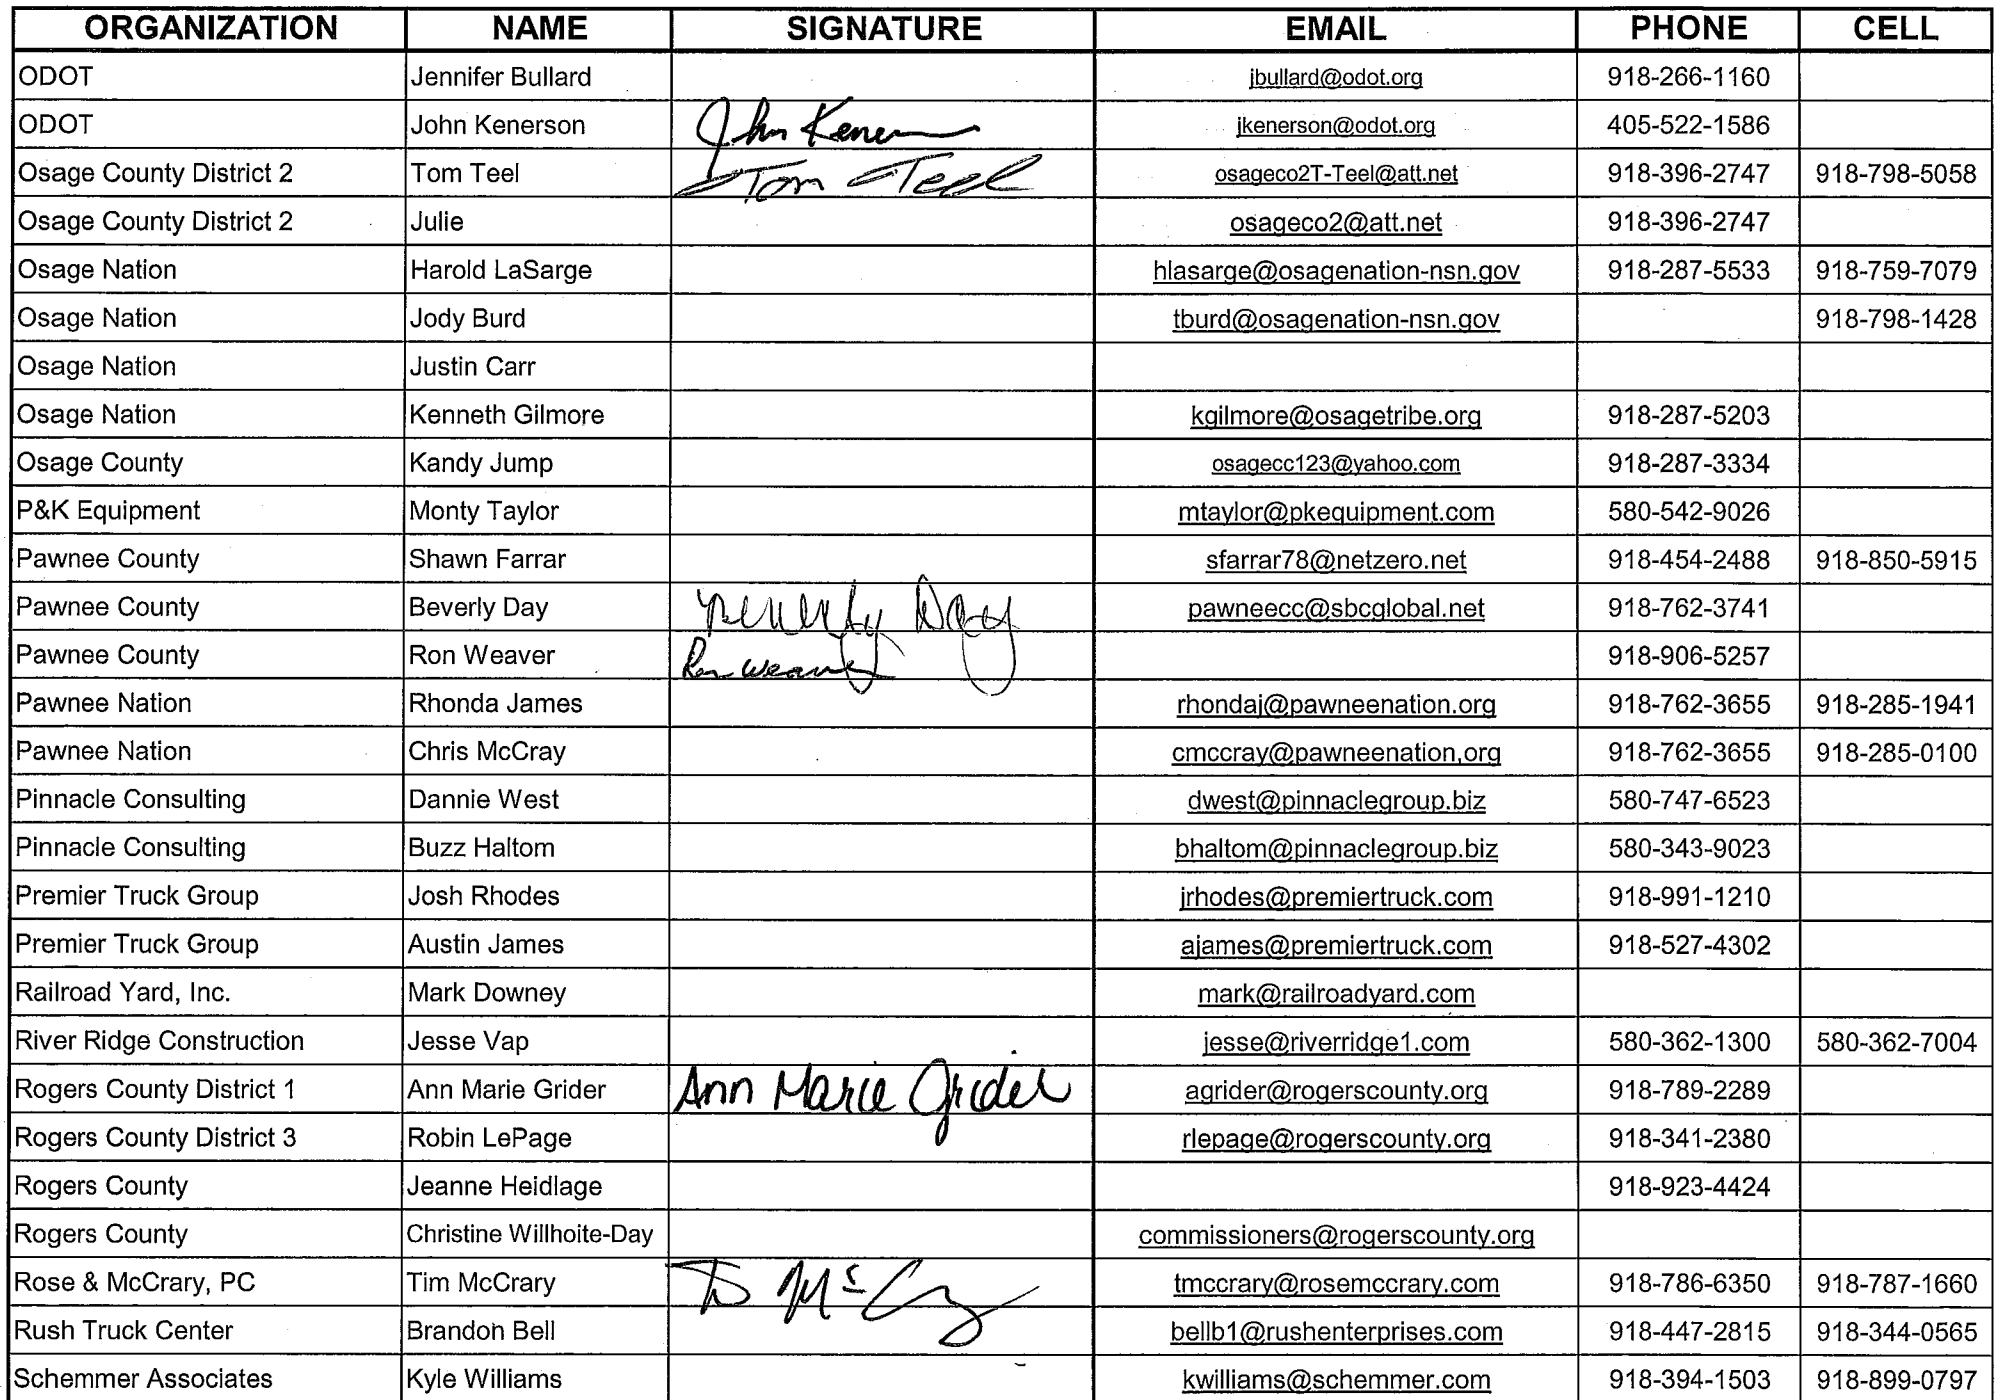 ORGANIZATION NAME SIGNATURE EMAIL PHONE CELL
ODOT Jennifer Bullard jbullard@odot.org 918-266-1160
ODOT John Kenerson John Kener jkenerson@odot.org 405-522-1586
Osage County District 2 Tom Teel Tom Teel osageco2T-Teel@att.net 918-396-2747 918-798-5058
Osage County District 2 Julie osageco2@att.net 918-396-2747
Osage Nation Harold LaSarge hlasarge@osagenation-nsn.gov 918-287-5533 918-759-7079
Osage Nation Jody Burd tburd@osagenation-nsn.gov 918-798-1428
Osage Nation Justin Carr
Osage Nation Kenneth Gilmore kgilmore@osagetribe.org 918-287-5203
Osage County Kandy Jump osagecc123@yahoo.com 918-287-3334
P&K Equipment Monty Taylor mtaylor@pkequipment.com 580-542-9026
Pawnee County Shawn Farrar sfarrar78@netzero.net 918-454-2488 918-850-5915
Pawnee County Beverly Day Beverly Day pawneecc@sbcglobal.net 918-762-3741
Pawnee County Ron Weaver Ron Weaver 918-906-5257
Pawnee Nation Rhonda James rhondaj@pawneenation.org 918-762-3655 918-285-1941
Pawnee Nation Chris McCray cmccray@pawneenation,org 918-762-3655 918-285-0100
Pinnacle Consulting Dannie West dwest@pinnaclegroup.biz 580-747-6523
Pinnacle Consulting Buzz Haltom bhaltom@pinnaclegroup.biz 580-343-9023
Premier Truck Group Josh Rhodes jrhodes@premiertruck.com 918-991-1210
Premier Truck Group Austin James ajames@premiertruck.com 918-527-4302
Railroad Yard, Inc. Mark Downey mark@railroadyard.com
River Ridge Construction Jesse Vap jesse@riverridge1.com 580-362-1300 580-362-7004
Rogers County District 1 Ann Marie Grider Ann Marie Grider agrider@rogerscounty.org 918-789-2289
Rogers County District 3 Robin LePage rlepage@rogerscounty.org 918-341-2380
Rogers County Jeanne Heidlage 918-923-4424
Rogers County Christine Willhoite-Day commissioners@rogerscounty.org
Rose & McCrary, PC Tim McCrary tmccrary@rosemccrary.com 918-786-6350 918-787-1660
Rush Truck Center Brandon Bell bellb1@rushenterprises.com 918-447-2815 918-344-0565
Schemmer Associates Kyle Williams kwilliams@schemmer.com 918-394-1503 918-899-0797